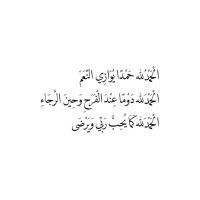 الحَمْدُلله حَمْدًا يُوَازِي النِّعَمَ
الحَمْدُلله دَوْمًا عِنْدَ الْفَرَحِ وَحِينَ الرَّجَاءِ
الحَمْدُلله كَمَا يُحِبُّ رَبِّي وَيَرْضَى